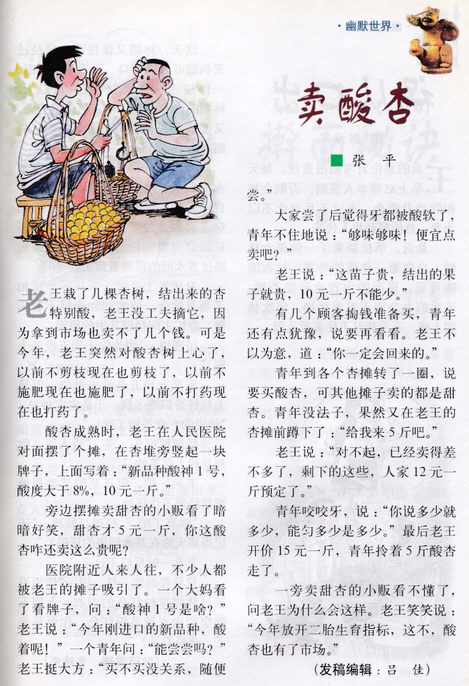 ·幽默世界·
卖酸杏
■ 张 平
老王栽了几棵杏树，结出来的杏
特别酸，老王没工夫摘它，因
为拿到市场也卖不了几个钱。可是
今年，老王突然对酸杏树上心了，
以前不剪枝现在也剪枝了，以前不
施肥现在也施肥了，以前不打药现
在也打药了。
酸杏成熟时，老王在人民医院
对面摆了个摊，在杏堆旁竖起一块
牌子，上面写着：“新品种酸神1号，
酸度大于8%，10元一斤。”
旁边摆摊卖甜杏的小贩看了暗
暗好笑，甜杏才5元一斤，你这酸
杏咋还卖这么贵呢？
医院附近人来人往，不少人都
被老王的摊子吸引了。一个大妈看
了看牌子，问：“酸神1号是啥？”
老王说：“今年刚进口的新品种，酸
着呢！”一个青年问：“能尝尝吗？”
老王挺大方：“买不买没关系，随便
尝。”
大家尝了后觉得牙都被酸软了，
青年不住地说：“够味够味！便宜点
卖吧？”
老王说：“这苗子贵，结出的果
子就贵，10元一斤不能少。”
有几个顾客掏钱准备买，青年
还有点犹豫，说要再看看。老王不
以为意，道：“你一定会回来的。”
青年到各个杏摊转了一圈，说
要买酸杏，可其他摊子卖的都是甜
杏。青年没法子，果然又在老王的
杏摊前蹲下了：“给我来5斤吧。”
老王说：“对不起，已经卖得差
不多了，剩下的这些，人家12元一
斤预定了。”
青年咬咬牙，说：“你说多少就
多少，能匀多少是多少。”最后老王
开价15元一斤，青年拎着5斤酸杏
走了。
一旁卖甜杏的小贩看不懂了，
问老王为什么会这样。老王笑笑说：
“今年放开二胎生育指标，这不，酸
杏也有了市场。”
（发稿编辑：吕 佳）